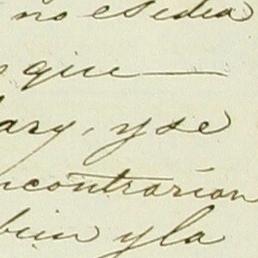 no esidea
que
ary, y se
ncontrarion
bien y la